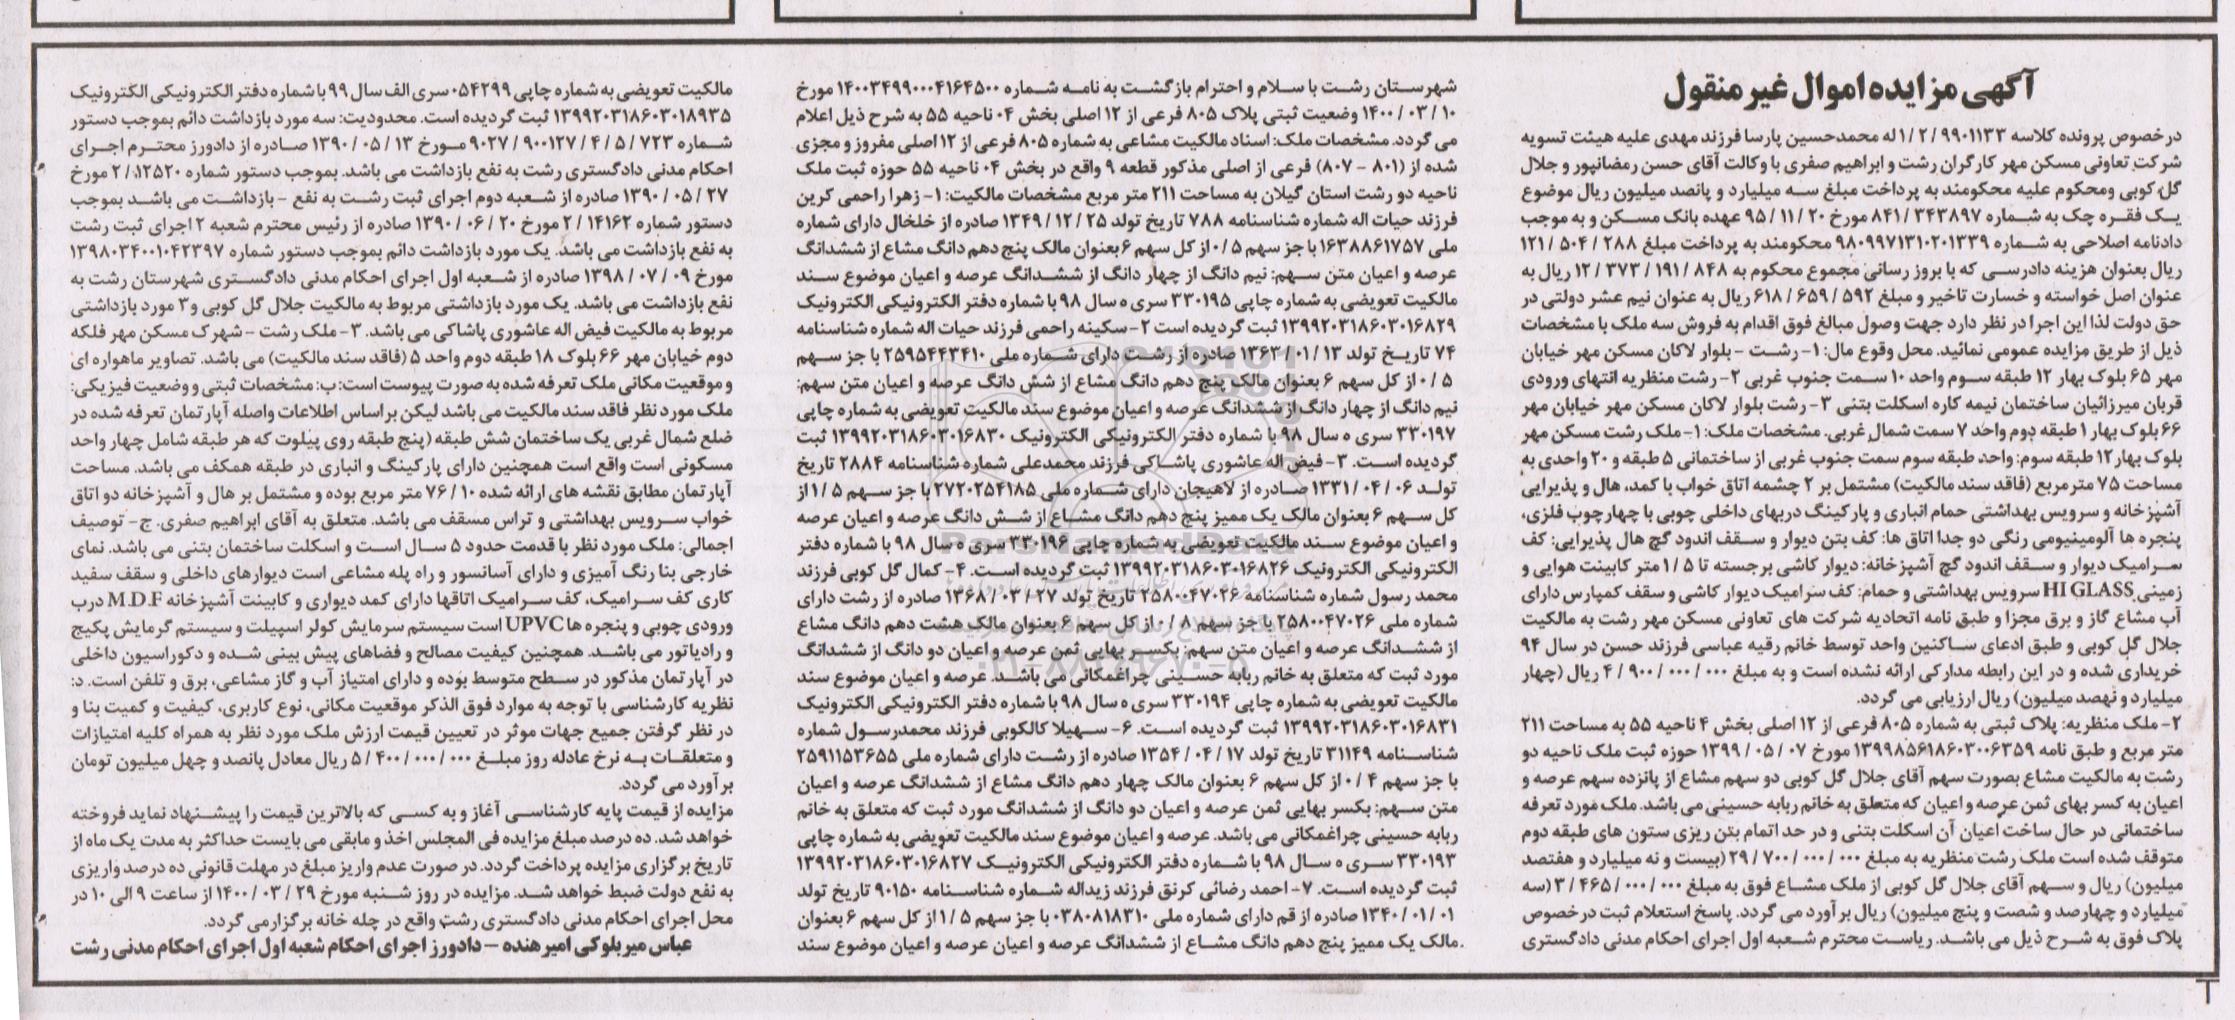 آگهی مزایده اموال غیر منقول
درخصوص پرونده کلاسه ۹۹۰۱۱۳۳ / ۲ / ۱ له محمدحسین پارسا فرزند مهدی علیه هیئت تسویه
شرکت تعاونی مسکن مهر کارگران رشت و ابراهیم صفری با وکالت آقای حسن رمضانپور و جلال
گل کوبی ومحکوم علیه محکومند به پرداخت مبلغ سه میلیارد و پانصد میلیون ریال موضوع
یک فقره چک به شماره ۳۴۳۸۹۷ / ۸۴۱ مورخ ۲۰ / ۱۱ / ۹۵ عهده بانک مسکن و به موجب
دادنامه اصلاحی به شماره ۹۸۰۹۹۷۱۳۱۰۲۰۱۳۳۹ محکومند به پرداخت مبلغ ۲۸۸ / ۵۰۴ / ۱۲۱
ریال بعنوان هزینه دادرسی که با بروز رسانی مجموع محکوم به ۸۴۸ / ۱۹۱ / ۳۷۳ / ۱۲ ریال به
عنوان اصل خواسته و خسارت تاخیر و مبلغ ۵۹۲ / ۶۵۹ / ۶۱۸ ریال به عنوان نیم عشر دولتی در
حق دولت لذا این اجرا در نظر دارد جهت وصول مبالغ فوق اقدام به فروش سه ملک با مشخصات
ذیل از طریق مزایده عمومی نمائید. محل وقوع مال: ۱- رشت - بلوار لاکان مسکن مهر خیابان
مهر ۶۵ بلوک بهار ۱۲ طبقه سوم واحد ۱۰ سمت جنوب غربی ۲- رشت منظریه انتهای ورودی
قربان میرزائیان ساختمان نیمه کاره اسکلت بتنی ۳- رشت بلوار لاکان مسکن مهر خیابان مهر
۶۶ بلوک بهار ۱ طبقه دوم واحد ۷ سمت شمال غربی. مشخصات ملک: ۱- ملک رشت مسکن مهر
بلوک بهار ۱۲ طبقه سوم: واحد طبقه سوم سمت جنوب غربی از ساختمانی ۵ طبقه و ۲۰ واحدی به
مساحت ۷۵ متر مربع (فاقد سند مالکیت) مشتمل بر ۲ چشمه اتاق خواب با کمد، هال و پذیرایی
آشپزخانه و سرویس بهداشتی حمام انباری و پارکینگ دربهای داخلی چوبی با چهارچوب فلزی،
پنجره ها آلومینیومی رنگی دو جدا اتاق ها: کف بتن دیوار و سقف اندود گچ هال پذیرایی: کف
سرامیک دیوار و سقف اندود گچ آشپزخانه: دیوار کاشی برجسته تا ۵ / ۱ متر کابینت هوایی و
زمینی HI GLASS سرویس بهداشتی و حمام: کف سرامیک دیوار کاشی و سقف کمپارس دارای
آب مشاع گاز و برق مجزا و طبق نامه اتحادیه شرکت های تعاونی مسکن مهر رشت به مالکیت
جلال گل کوبی و طبق ادعای ساکنین واحد توسط خانم رقیه عباسی فرزند حسن در سال ۹۴
خریداری شده و در این رابطه مدارکی ارائه نشده است و به مبلغ ۰۰۰ / ۰۰۰ / ۹۰۰ / ۴ ریال (چهار
میلیارد و نهصد میلیون) ریال ارزیابی می گردد.
۲- ملک منظریه: پلاک ثبتی به شماره ۸۰۵ فرعی از ۱۲ اصلی بخش ۴ ناحیه ۵۵ به مساحت ۲۱۱
متر مربع و طبق نامه ۱۳۹۹۸۵۶۱۸۶۰۳۰۰۶۳۵۹ مورخ ۰۷ / ۰۵ / ۱۳۹۹ حوزه ثبت ملک ناحیه دو
رشت به مالکیت مشاع بصورت سهم آقای جلال گل کوبی دو سهم مشاع از پانزده سهم عرصه و
اعیان به کسر بهای ثمن عرصه و اعیان که متعلق به خانم ربابه حسینی می باشد. ملک مورد تعرفه
ساختمانی در حال ساخت اعیان آن اسکلت بتنی و در حد اتمام بتن ریزی ستون های طبقه دوم
متوقف شده است ملک رشت منظریه به مبلغ ۰۰۰ / ۰۰۰ / ۷۰۰ / ۲۹ (بیست و نه میلیارد و هفتصد
میلیون) ریال و سهم آقای جلال گل کوبی از ملک مشاع فوق به مبلغ ۰۰۰ / ۰۰۰ / ۴۶۵ / ۳ (سه
میلیارد و چهارصد و شصت و پنج میلیون) ریال برآورد می گردد. پاسخ استعلام ثبت درخصوص
پلاک فوق به شرح ذیل می باشد. ریاست محترم شعبه اول اجرای احکام مدنی دادگستری
شهرستان رشت با سلام و احترام بازگشت به نامه شماره ۱۴۰۰۳۴۹۹۰۰۰۴۱۶۴۵۰۰ مورخ
۱۰ / ۰۳ / ۱۴۰۰ وضعیت ثبتی پلاک ۸۰۵ فرعی از ۱۲ اصلی بخش ۰۴ ناحیه ۵۵ به شرح ذیل اعلام
می گردد. مشخصات ملک: اسناد مالکیت مشاعی به شماره ۸۰۵ فرعی از ۱۲ اصلی مفروز و مجزی
شده از (۸۰۱ - ۸۰۷) فرعی از اصلی مذکور قطعه ۹ واقع در بخش ۰۴ ناحیه ۵۵ حوزه ثبت ملک
ناحیه دو رشت استان گیلان به مساحت ۲۱۱ متر مربع مشخصات مالکیت: ۱- زهرا راحمی کرین
فرزند حیات اله شماره شناسنامه ۷۸۸ تاریخ تولد ۲۵ / ۱۲ / ۱۳۴۹ صادره از خلخال دارای شماره
ملی ۱۶۳۸۸۶۱۷۵۷ با جز سهم ۵ / ۰ از کل سهم ۶ بعنوان مالک پنج دهم دانگ مشاع از ششدانگ
عرصه و اعیان متن سهم: نیم دانگ از چهار دانگ از ششدانگ عرصه و اعیان موضوع سند
مالکیت تعویضی به شماره چاپی ۳۳۰۱۹۵ سری ه سال ۹۸ با شماره دفتر الکترونیکی الکترونیک
۱۳۹۹۲۰۳۱۸۶۰۳۰۱۶۸۲۹ ثبت گردیده است ۲- سکینه راحمی فرزند حیات اله شماره شناسنامه
۷۴ تاریخ تولد ۱۳ / ۰۱ / ۱۳۶۳ صادره از رشت دارای شماره ملی ۲۵۹۵۴۴۳۴۱۰ با جز سهم
۵ / ۰ از کل سهم ۶ بعنوان مالک پنج دهم دانگ مشاع از شش دانگ عرصه و اعیان متن سهم:
نیم دانگ از چهار دانگ از ششدانگ عرصه و اعیان موضوع سند مالکیت تعویضی به شماره چاپی
۳۳۰۱۹۷ سری ه سال ۹۸ با شماره دفتر الکترونیکی الکترونیک ۱۳۹۹۲۰۳۱۸۶۰۳۰۱۶۸۳۰ ثبت
گردیده است. ۳- فیض اله عاشوری پاشاکی فرزند محمدعلی شماره شناسنامه ۲۸۸۴ تاریخ
تولد ۰۶ / ۰۴ / ۱۳۳۱ صادره از لاهیجان دارای شماره ملی ۲۷۲۰۲۵۴۱۸۵ با جز سهم ۵ / ۱ از
کل سهم ۶ بعنوان مالک یک ممیز پنج دهم دانگ مشاع از شش دانگ عرصه و اعیان عرصه
و اعیان موضوع سند مالکیت تعویضی به شماره چاپی ۳۳۰۱۹۶ سری ه سال ۹۸ با شماره دفتر
الکترونیکی الکترونیک ۱۳۹۹۲۰۳۱۸۶۰۳۰۱۶۸۲۶ ثبت گردیده است. ۴- کمال گل کوبی فرزند
محمد رسول شماره شناسنامه ۲۵۸۰۰۴۷۰۲۶ تاریخ تولد ۲۷ / ۰۳ / ۱۳۶۸ صادره از رشت دارای
شماره ملی ۲۵۸۰۰۴۷۰۲۶ با جز سهم ۸ / ۰ از کل سهم ۶ بعنوان مالک هشت دهم دانگ مشاع
از ششدانگ عرصه و اعیان متن سهم: بکسر بهایی ثمن عرصه و اعیان دو دانگ از ششدانگ
مورد ثبت که متعلق به خانم ربابه حسینی چراغمکانی می باشد. عرصه و اعیان موضوع سند
مالکیت تعویضی به شماره چاپی ۳۳۰۱۹۴ سری ه سال ۹۸ با شماره دفتر الکترونیکی الکترونیک
۱۳۹۹۲۰۳۱۸۶۰۳۰۱۶۸۳۱ ثبت گردیده است. ۶- سهیلا کالکوبی فرزند محمدرسول شماره
شناسنامه ۳۱۱۴۹ تاریخ تولد ۱۷ / ۰۴ / ۱۳۵۴ صادره از رشت دارای شماره ملی ۲۵۹۱۱۵۳۶۵۵
با جز سهم ۴ / ۰ از کل سهم ۶ بعنوان مالک چهار دهم دانگ مشاع از ششدانگ عرصه و اعیان
متن سهم: بکسر بهایی ثمن عرصه و اعیان دو دانگ از ششدانگ مورد ثبت که متعلق به خانم
ربابه حسینی چراغمکانی می باشد. عرصه و اعیان موضوع سند مالکیت تعویضی به شماره چاپی
۳۳۰۱۹۳ سری ه سال ۹۸ با شماره دفتر الکترونیکی الکترونیک ۱۳۹۹۲۰۳۱۸۶۰۳۰۱۶۸۲۷
ثبت گردیده است. ۷- احمد رضائی کرنق فرزند زیداله شماره شناسنامه ۹۰۱۵۰ تاریخ تولد
۰۱ / ۰۱ / ۱۳۴۰ صادره از قم دارای شماره ملی ۰۳۸۰۸۱۸۳۱۰ با جز سهم ۵ / ۱ از کل سهم ۶ بعنوان
مالک یک ممیز پنج دهم دانگ مشاع از ششدانگ عرصه و اعیان عرصه و اعیان موضوع سند
مالکیت تعویضی به شماره چاپی ۰۵۴۲۹۹ سری الف سال ۹۹ با شماره دفتر الکترونیکی الکترونیک
۱۳۹۹۲۰۳۱۸۶۰۳۰۱۸۹۳۵ ثبت گردیده است. محدودیت: سه مورد بازداشت دائم بموجب دستور
شماره ۷۲۳ / ۵ / ۴ / ۹۰۰۱۲۷ / ۹۰۲۷ مورخ ۱۳ / ۰۵ / ۱۳۹۰ صادره از دادورز محترم اجرای
احکام مدنی دادگستری رشت به نفع بازداشت می باشد. بموجب دستور شماره ۱۲۵۲۰ / ۲ مورخ
۲۷ / ۰۵ / ۱۳۹۰ صادره از شعبه دوم اجرای ثبت رشت به نفع - بازداشت می باشد بموجب
دستور شماره ۱۴۱۶۲ / ۲ مورخ ۲۰ / ۰۶ / ۱۳۹۰ صادره از رئیس محترم شعبه ۲ اجرای ثبت رشت
به نفع بازداشت می باشد. یک مورد بازداشت دائم بموجب دستور شماره ۱۳۹۸۰۳۴۰۰۱۰۴۲۳۹۷
مورخ ۰۹ / ۰۷ / ۱۳۹۸ صادره از شعبه اول اجرای احکام مدنی دادگستری شهرستان رشت به
نفع بازداشت می باشد. یک مورد بازداشتی مربوط به مالکیت جلال گل کوبی و ۳ مورد بازداشتی
مربوط به مالکیت فیض اله عاشوری پاشاکی می باشد. ۳- ملک رشت - شهرک مسکن مهر فلکه
دوم خیابان مهر ۶۶ بلوک ۱۸ طبقه دوم واحد ۵ (فاقد سند مالکیت) می باشد. تصاویر ماهواره ای
و موقعیت مکانی ملک تعرفه شده به صورت پیوست است: ب: مشخصات ثبتی و وضعیت فیزیکی:
ملک مورد نظر فاقد سند مالکیت می باشد لیکن براساس اطلاعات واصله آپارتمان تعرفه شده در
ضلع شمال غربی یک ساختمان شش طبقه (پنج طبقه روی پیلوت که هر طبقه شامل چهار واحد
مسکونی است واقع است همچنین دارای پارکینگ و انباری در طبقه همکف می باشد. مساحت
آپارتمان مطابق نقشه های ارائه شده ۱۰ / ۷۶ متر مربع بوده و مشتمل بر هال و آشپزخانه دو اتاق
خواب سرویس بهداشتی و تراس مسقف می باشد. متعلق به آقای ابراهیم صفری. ج- توصیف
اجمالی: ملک مورد نظر با قدمت حدود ۵ سال است و اسکلت ساختمان بتنی می باشد. نمای
خارجی بنا رنگ آمیزی و دارای آسانسور و راه پله مشاعی است دیوارهای داخلی و سقف سفید
کاری کف سرامیک، کف سرامیک اتاقها دارای کمد دیواری و کابینت آشپزخانه M.D.F درب
ورودی چوبی و پنجره ها UPVC است سیستم سرمایش کولر اسپیلت و سیستم گرمایش پکیج
و رادیاتور می باشد. همچنین کیفیت مصالح و فضاهای پیش بینی شده و دکوراسیون داخلی
در آپارتمان مذکور در سطح متوسط بوده و دارای امتیاز آب و گاز مشاعی، برق و تلفن است. د:
نظریه کارشناسی با توجه به موارد فوق الذکر موقعیت مکانی، نوع کاربری، کیفیت و کمیت بنا و
در نظر گرفتن جمیع جهات موثر در تعیین قیمت ارزش ملک مورد نظر به همراه کلیه امتیازات
و متعلقات به نرخ عادله روز مبلغ ۰۰۰ / ۰۰۰ / ۴۰۰ / ۵ ریال معادل پانصد و چهل میلیون تومان
برآورد می گردد.
مزایده از قیمت پایه کارشناسی آغاز و به کسی که بالاترین قیمت را پیشنهاد نماید فروخته
خواهد شد. ده درصد مبلغ مزایده فی المجلس اخذ و مابقی می بایست حداکثر به مدت یک ماه از
تاریخ برگزاری مزایده پرداخت گردد. در صورت عدم واریز مبلغ در مهلت قانونی ده درصد واریزی
به نفع دولت ضبط خواهد شد. مزایده در روز شنبه مورخ ۲۹ / ۰۳ / ۱۴۰۰ از ساعت ۹ الی ۱۰ در
محل اجرای احکام مدنی دادگستری رشت واقع در چله خانه برگزار می گردد.
عباس میربلوکی امیرهنده - دادورز اجرای احکام شعبه اول اجرای احکام مدنی رشت
ParsNamadData
۰۲۱-۸۸۳۴۹۶۷۰-۵